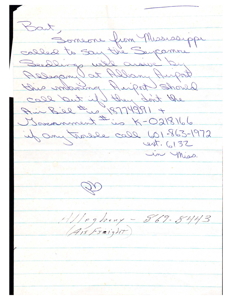 Bart,
Someone from Mississippi
called to say the Sycamore
Seedlings will arrive by
Allegany at Albany Airport
this morning. Airport should
call but if they don't the
Air Bill # is 19774391 +
Government # is K-0218166
if any trouble call 601-863-1972
ext. 6132
in Miss
Allegheny - 869-5443
(Air Freight)